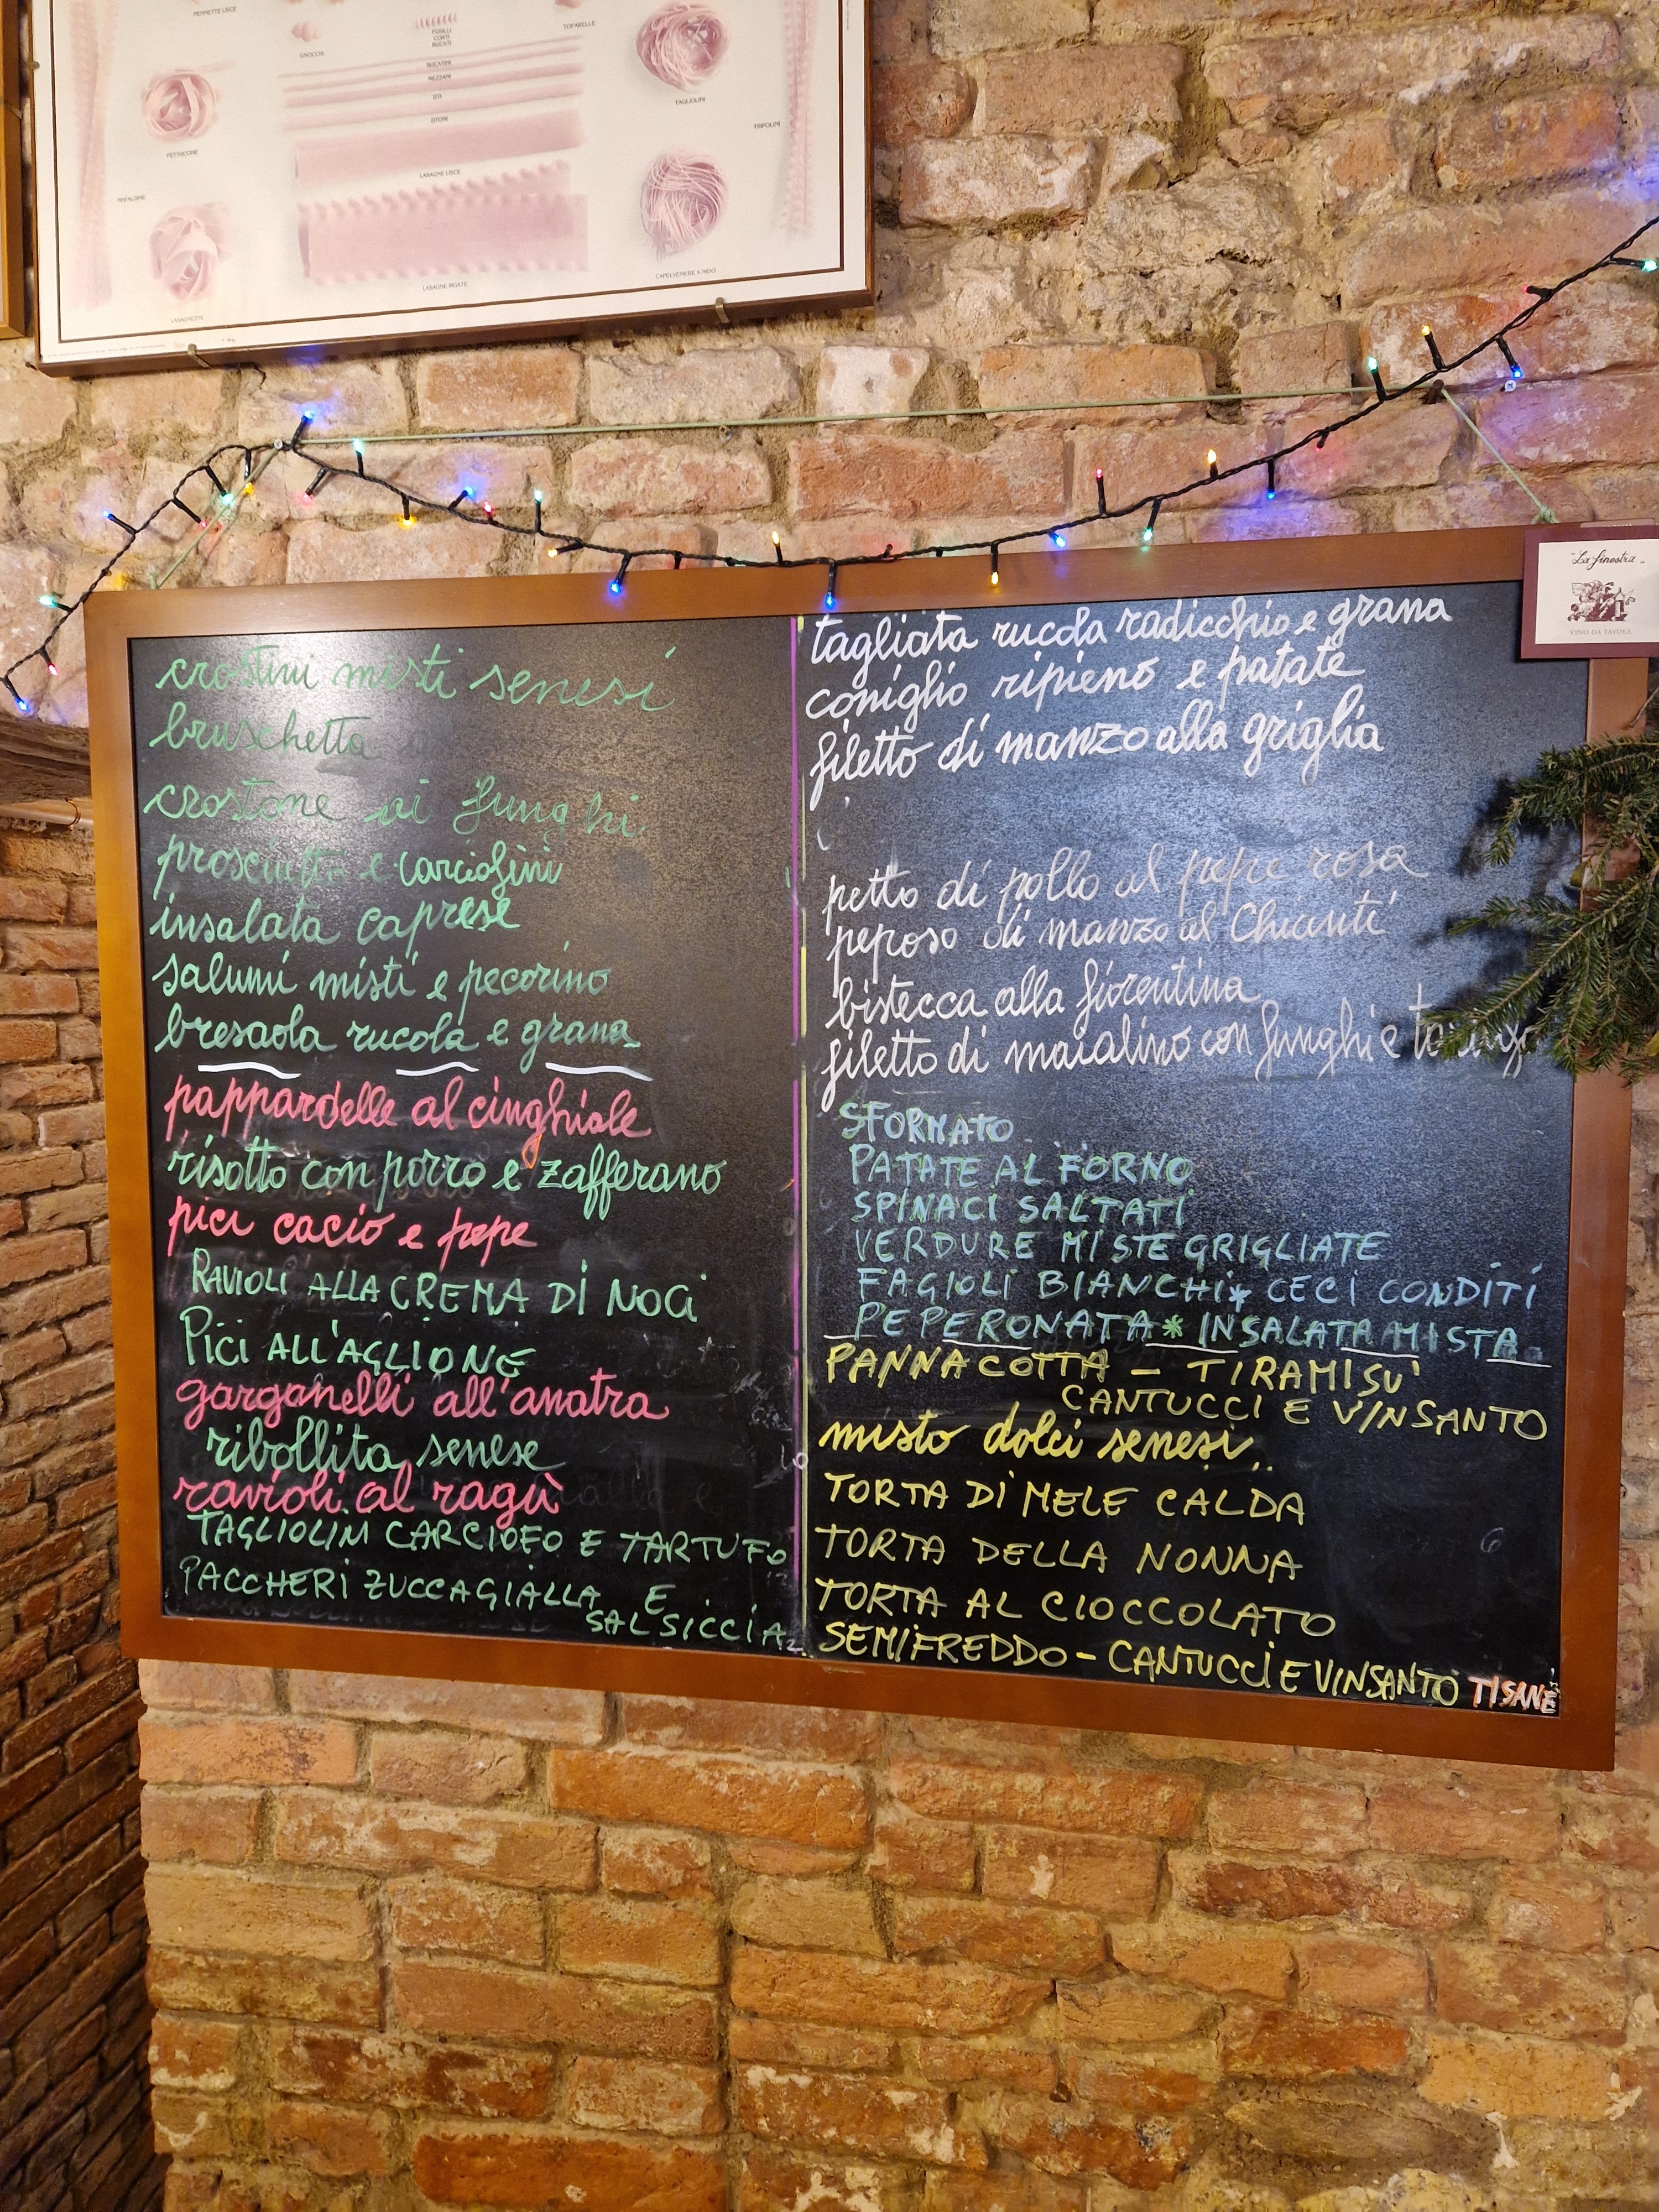 PENNETTE LISCE
GNOCCHI
FUSILLI
CORTI
BUCATI
TOFARELLE
BUCATINI
MEZZANI
ZITI
ZITONI
FETTUCCINE
TAGLIOLINI
TRIPOLINI
LASAGNE LISCE
MAFALDINE
LASAGNE RICATE
CAPELVENERE A NIDO
LASAGNETTE
"La finestra"
VINO DA TAVOLA
crostini misti senesi
bruschetta
crostone ai funghi
prosciutto e carciofini
insalata caprese
salumi misti e pecorino
bresaola rucola e grana
pappardelle al cinghiale
risotto con porro e zafferano
pici cacio e pepe
RAVIOLI ALLA CREMA DI NOCI
PICI ALL'AGLIONE
garganelli all'anatra
ribollita senese
ravioli al ragù
TAGLIOLINI CARCIOFO E TARTUFO
PACCHERI ZUCCA GIALLA E
SALSICCIA
tagliata rucola radicchio e grana
coniglio ripieno e patate
filetto di manzo alla griglia
petto di pollo al pepe rosa
peposo di manzo al Chianti
bistecca alla fiorentina
filetto di maialino con funghi e
SFORMATO
PATATE AL FORNO
SPINACI SALTATI
VERDURE MISTE GRIGLIATE
FAGIOLI BIANCHI * CECI CONDITI
PEPERONATA * INSALATA MISTA
PANNA COTTA - TIRAMISU'
CANTUCCI E VINSANTO
misto dolci senesi
TORTA DI MELE CALDA
TORTA DELLA NONNA
TORTA AL CIOCCOLATO
SEMIFREDDO - CANTUCCI E VINSANTO TISANE